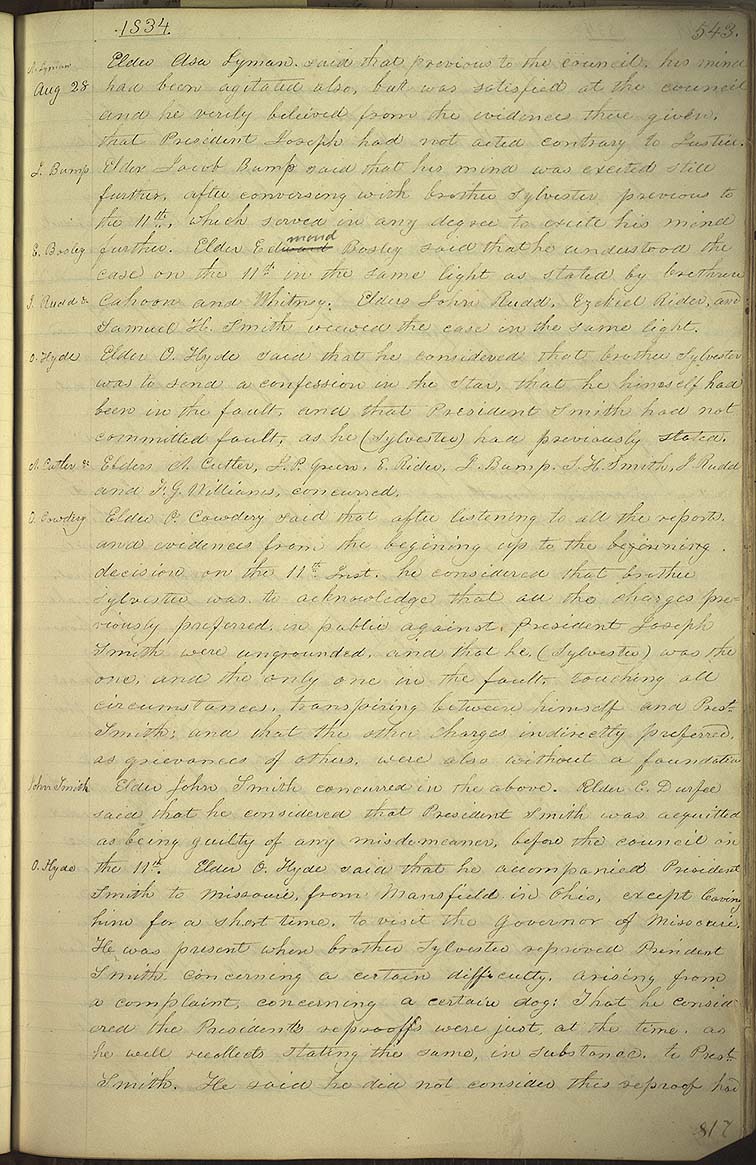 1834.
543.
A. Lyman
Elder Asa Lyman. said that previous to the council, his mind
Aug 28
had been agitated also, but was satisfied at the council
and he verily believed from the evidences there given,
that President Joseph had not acted contrary to Justice.
J. Bump
Elder Jacob Bump said that his mind was excited still
further, after conversing with brother Sylvester previous to
the 11th, which served in any degree to excite his mind
E. Bosley
further. Elder Edward mond Bosley said that he understood the
case on the 11th in the same light as stated by brethren
J. Rudd &c
Cahoon and Whitney. Elders John Rudd, Ezekiel Rider, and
Samuel H. Smith viewed the case in the same light.
O. Hyde
Elder O. Hyde said that he considered that brother Sylvester
was to send a confession in the Star, that he himself had
been in the fault, and that President Smith had not
committed fault, as he (Sylvester) had previously stated.
A. Cutler &c
Elders A. Cutler, J. P. Green, E. Rider, J. Bump. S. H. Smith, J Rudd
and F. G. Williams, concurred.
O. Cowdery
Elder O. Cowdery said that after listening to all the reports.
and evidences from the begining up to the beginning
decision on the 11th Inst. he considered that brother
Sylvester was to acknowledge that all the charges pre-
viously preferred, in public against President Joseph
Smith were ungrounded, and that he, (Sylvester) was the
one, and the only one in the fault, touching all
circumstances, transpiring between himself and Prest.
Smith; and that the other charges indirectly preferred,
as grievances of others, were also without a foundation
John Smith
Elder John Smith concurred in the above. Elder E. Durfee
said that he considered that President Smith was acquitted
as being guilty of any misdemeaner, before the council on
O. Hyde
the 11th. Elder O. Hyde said that he accompanied President
Smith to Missouri, from Mansfield in Ohio, except leaving
him for a short time, to visit the Governor of Missouri.
He was present when brother Sylvester reproved President
Smith concerning a certain difficulty, arising from
a complaint, concerning a certain dog; That he consid-
ered the Presidents reproofs were just, at the time, as
he well recollects stating the same, in substance, to Prest.
Smith. He said he did not consider this reproof had
817